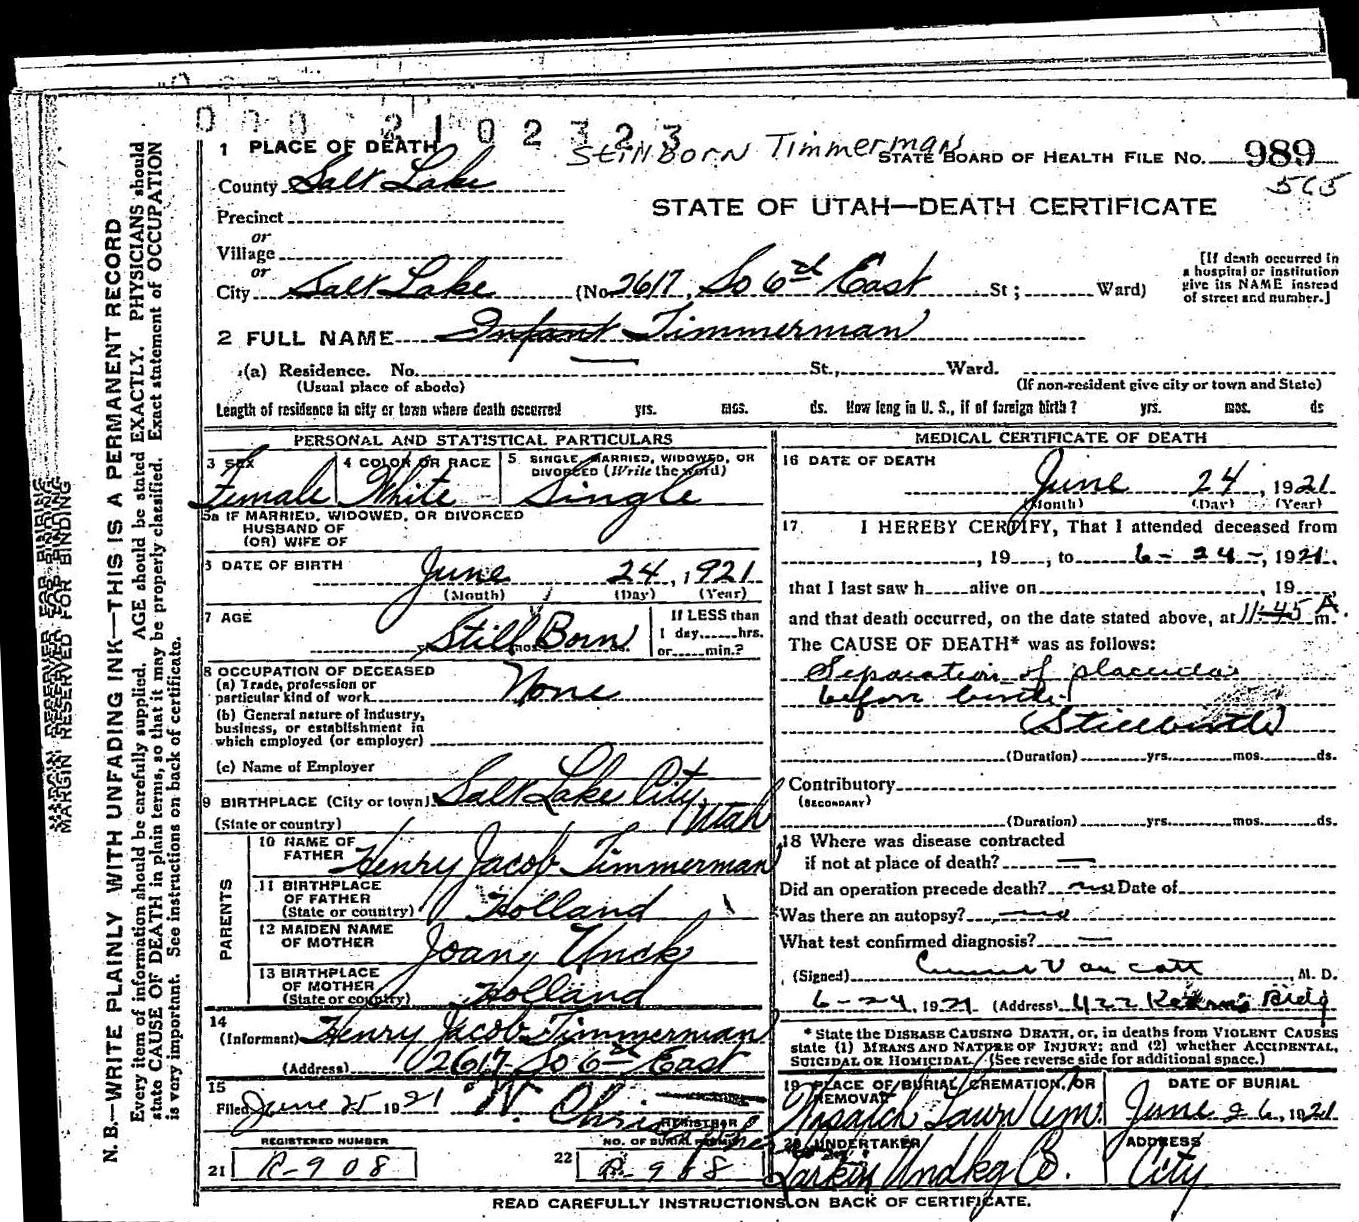 000 2102323
Stillborn Timmerman
1 PLACE OF DEATH
STATE BOARD OF HEALTH FILE NO. 989
565
County Salt Lake
STATE OF UTAH—DEATH CERTIFICATE
Precinct
or
Village
or
City Salt Lake (No 2617, So 6th East St; Ward)
[If death occurred in
a hospital or institution
give its NAME instead
of street and number.]
2 FULL NAME Infant Timmerman
(a) Residence. No. St., Ward.
(Usual place of abode) (If non-resident give city or town and State)
Length of residence in city or town where death occurred yrs. mos. ds. How long in U. S., if of foreign birth? yrs. mos. ds
PERSONAL AND STATISTICAL PARTICULARS
3 SEX Female
4 COLOR OR RACE White
5 SINGLE, MARRIED, WIDOWED, OR
DIVORCED (Write the word)
Single
5a IF MARRIED, WIDOWED, OR DIVORCED
HUSBAND OF
(OR) WIFE OF
6 DATE OF BIRTH June 24, 1921
(Month) (Day) (Year)
7 AGE Still Born mos.
If LESS than
1 day, hrs.
or min.?
8 OCCUPATION OF DECEASED
(a) Trade, profession or
particular kind of work None
(b) General nature of industry,
business, or establishment in
which employed (or employer)
(c) Name of Employer
9 BIRTHPLACE (City or town) Salt Lake City,
(State or country) Utah
PARENTS
10 NAME OF
FATHER Henry Jacob Timmerman
11 BIRTHPLACE
OF FATHER
(State or country) Holland
12 MAIDEN NAME
OF MOTHER Joany Unck
13 BIRTHPLACE
OF MOTHER
(State or country) Holland
14
(Informant) Henry Jacob Timmerman
(Address) 2617 So 6th East
15
Filed June 25 1921 W. Christopher
REGISTRAR
REGISTERED NUMBER
21 R-908
NO. OF BURIAL PERMIT
22 R-988
MEDICAL CERTIFICATE OF DEATH
16 DATE OF DEATH
June 24, 1921
(Month) (Day) (Year)
17 I HEREBY CERTIFY, That I attended deceased from
, 19 , to 6-24-, 1921.
that I last saw h alive on , 19
and that death occurred, on the date stated above, at 11-45 A. m.
The CAUSE OF DEATH* was as follows:
Separation of placenta
before birth
(Stillbirth)
(Duration) yrs. mos. ds.
Contributory
(SECONDARY)
(Duration) yrs. mos. ds.
18 Where was disease contracted
if not at place of death? —
Did an operation precede death? no Date of
Was there an autopsy? no
What test confirmed diagnosis? —
(Signed) Van Cott, M. D.
6-24, 1921 (Address) 422 Kearns Bldg
* State the DISEASE CAUSING DEATH, or, in deaths from VIOLENT CAUSES
state (1) MEANS AND NATURE OF INJURY; and (2) whether ACCIDENTAL,
SUICIDAL OR HOMICIDAL. (See reverse side for additional space.)
19 PLACE OF BURIAL, CREMATION, OR
REMOVAL
Wasatch Lawn Cem.
DATE OF BURIAL
June 26, 1921
20 UNDERTAKER
Larkin Undkg Co.
ADDRESS
City
READ CAREFULLY INSTRUCTIONS ON BACK OF CERTIFICATE.
MARGIN RESERVED FOR BINDING
N. B.—WRITE PLAINLY WITH UNFADING INK—THIS IS A PERMANENT RECORD
Every item of information should be carefully supplied. AGE should be stated EXACTLY. PHYSICIANS should
state CAUSE OF DEATH in plain terms, so that it may be properly classified. Exact statement of OCCUPATION
is very important. See instructions on back of certificate.